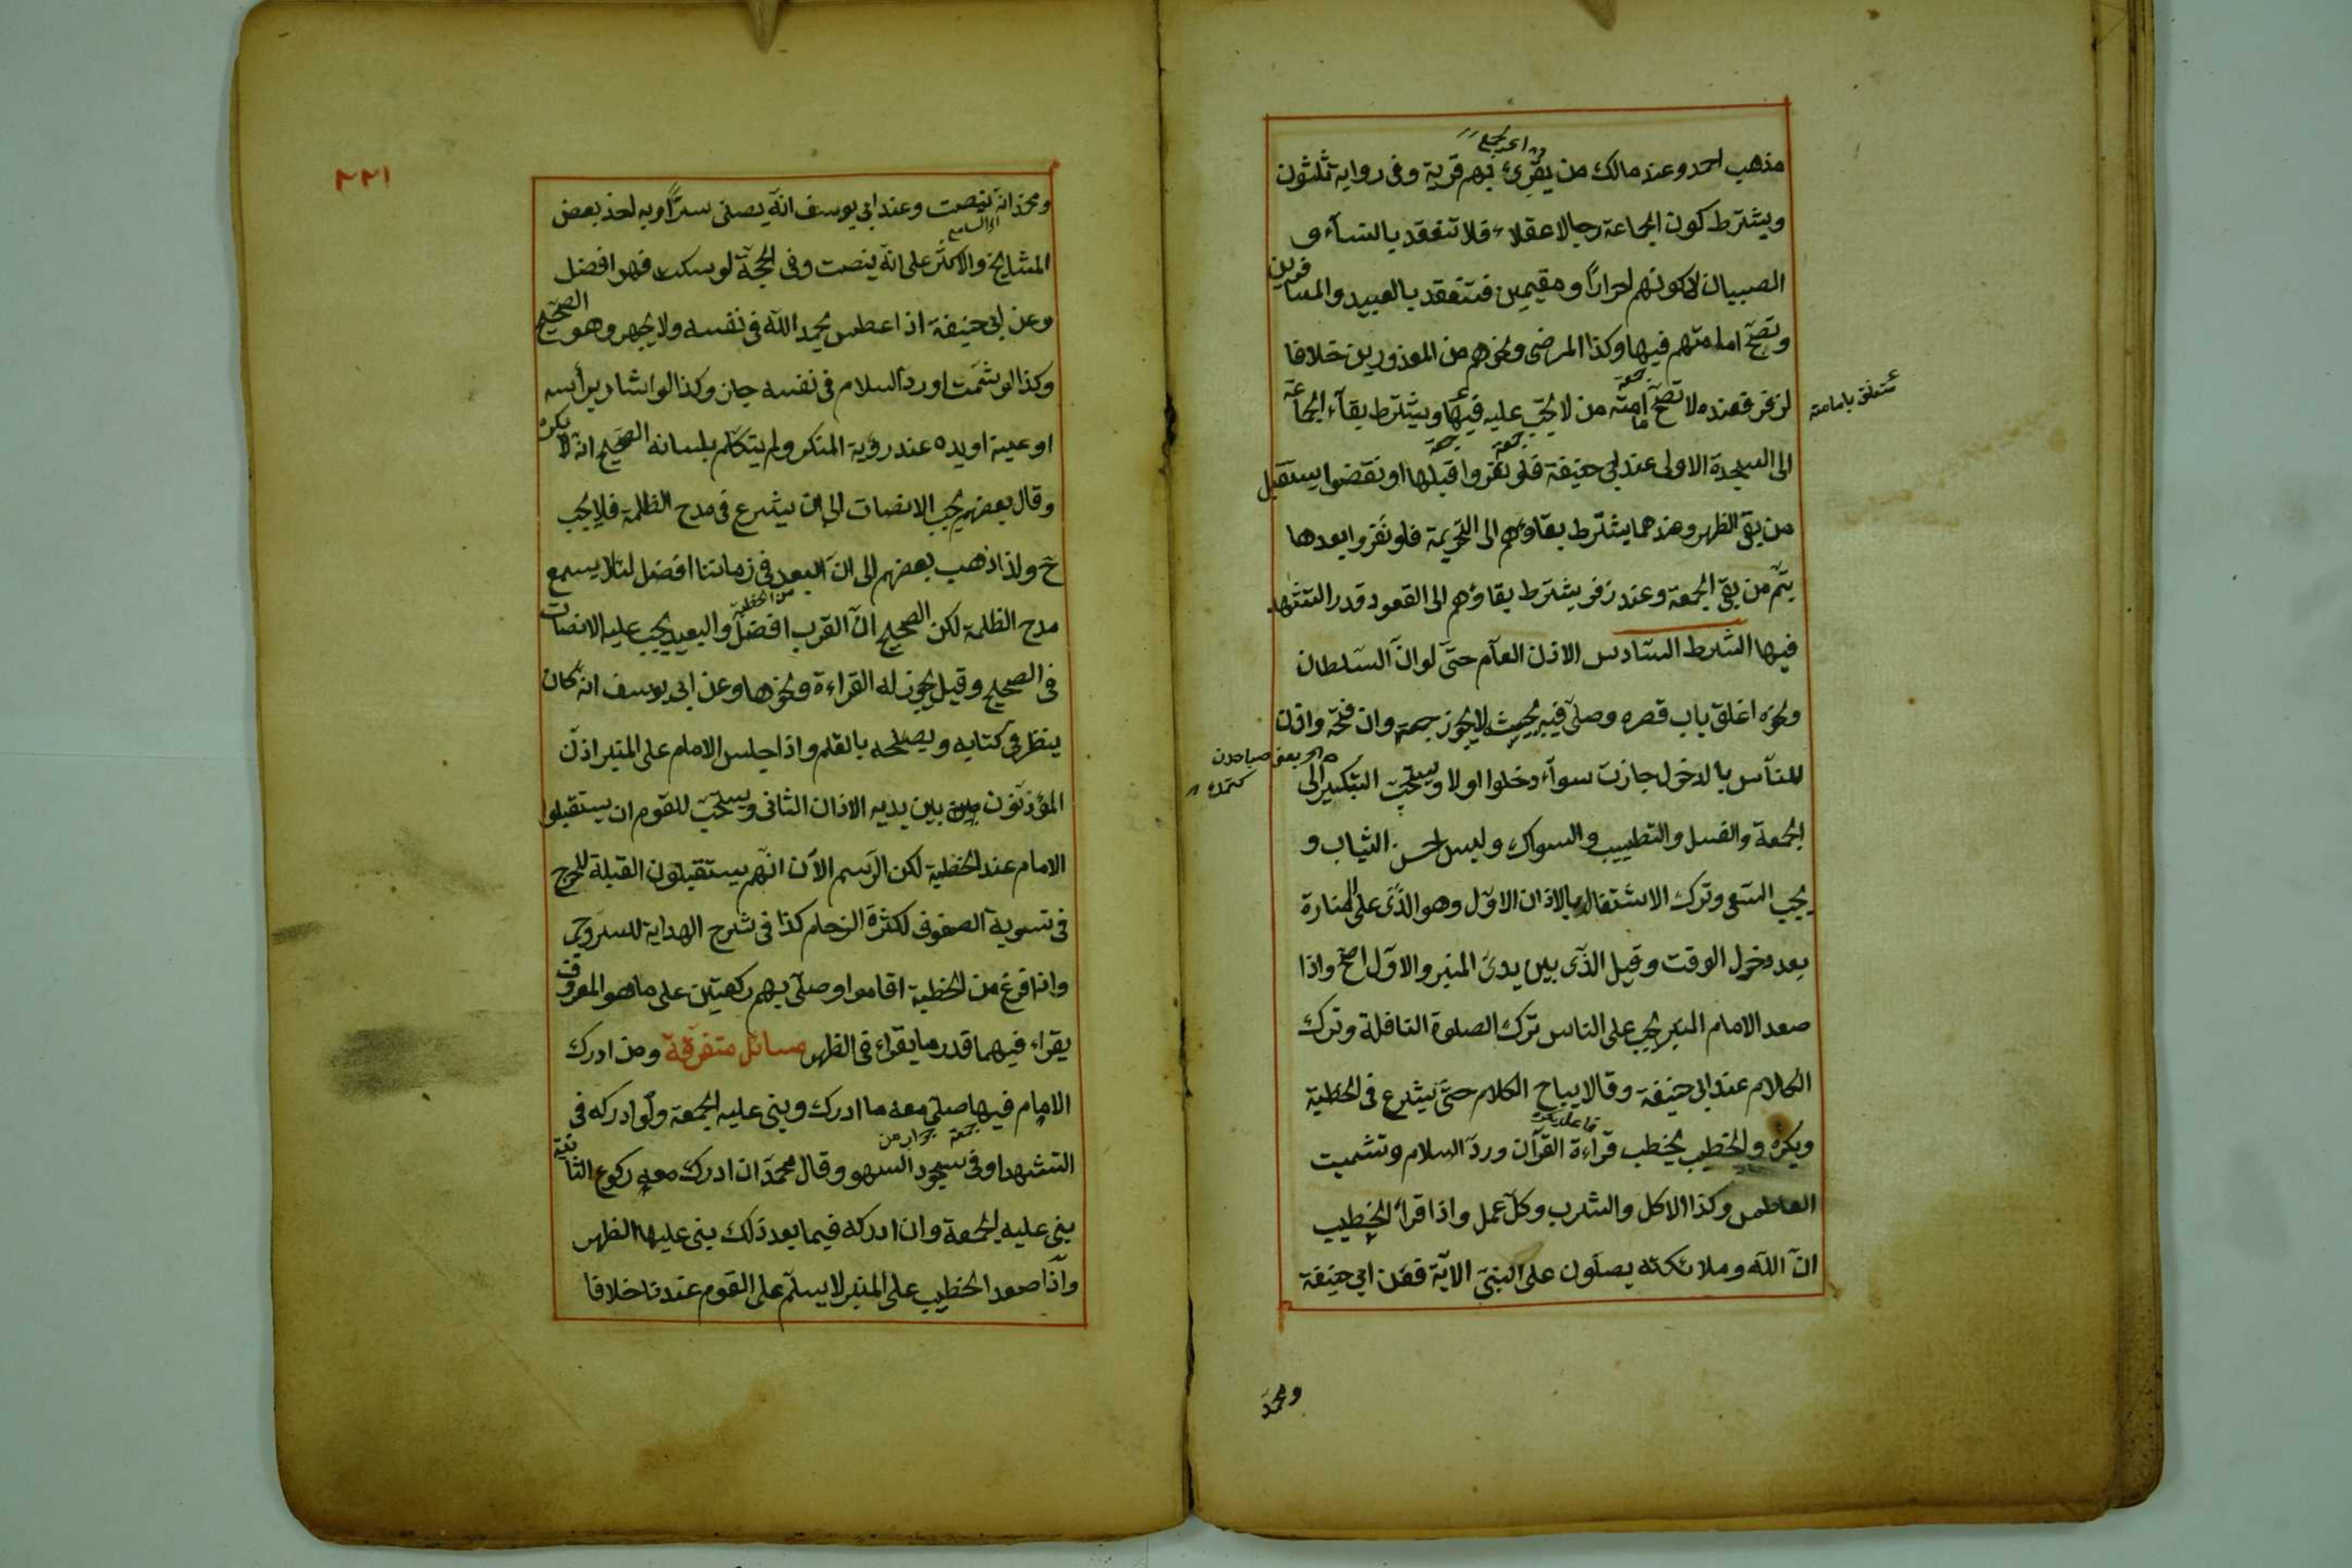 مذهب احمد وعند مالك من يقرى بهم قرية وفى رواية ثلثون
ويشترط كون الجماعة رجالا عقلاء فلا تنعقد بالنسآء و
الصبيان لا كونهم احرارًا ومقيمين فتنعقد بالعبيد والمسافرين
وتصحّ امامتهم فيها وكذا المرضى ونحوهم من المعذورين خلافا
لزفر فعنده لا تصحّ امامة من لا يجب عليه فيها ويشترط بقآء الجماعة
متعلق بامامة
الى السجدة الاولى عند ابى حنيفة فلو نفروا قبلها او نقضوا يستقبل
من بقى الظهر وعندهما يشترط بقاؤهم الى التحريمة فلو نفروا بعدها
يتمّ من بقى الجمعة وعند زفر يشترط بقاؤهم الى القعود قدر التشهد
فيها الشرط السّادس الاذن العآم حتّى لو انّ السّلطان
ونحوه اغلق باب قصره وصلّى فيه بحيث لا يجوز جمعة وان فتحه واذن
للنّآس بالدخول جازت سوآء دخلوا اولا ويستحبّ التبكير الى
الجمعة والغسل والتطييب والسواك ولبس احسن الثياب و
يجب السّعى وترك الاشتغال بالاذان الاوّل وهو الذّى على المنارة
بعد دخول الوقت وقيل الذّى بين يدى المنبر والاوّل اصحّ واذا
صعد الامام المنبر يجب على الناس ترك الصلوة النافلة وترك
الكلام عند ابى حنيفة وقالا يباح الكلام حتّى يشرع فى الخطبة
ويكره والخطيب يخطب قرآءة القرآن وردّ السلام وتشميت
العاطس وكذا الاكل والشرب وكلّ عمل واذا قرأ الخطيب
انّ اللّه وملائكته يصلّون على النبىّ الآية فعن ابى حنيفة
ومحمّد
٢٢١
ومحمّد انه ينصت وعند ابى يوسف انّه يصلى سرًّا وبه اخذ بعض
المشايخ والاكثر على انّه ينصت وفى الحجّة لو سكت فهو افضل
وعن ابى حنيفة اذا عطس يحمد اللّه فى نفسه ولا يجهر وهو الصّحيح
وكذا لو شمّت او ردّ السلام فى نفسه جاز وكذا لو اشار برأسه
او عينه او يده عند رؤية المنكر ولم يتكلّم بلسانه الصّحيح انّه لا يكره
وقال بعضهم يجب الانصات الى ان يشرع فى مدح الظلمة فلا يجب
ح ولذا ذهب بعضهم الى انّ البعد فى زماننا افضل لئلا يسمع
مدح الظلمة لكن الصحيح انّ القرب افضل والبعيد يجب عليه الانصات
من الخطبة
فى الصحيح وقيل يجوز له القراءة ونحوها وعن ابى يوسف انه كان
ينظر فى كتابه ويصلحه بالقلم واذا جلس الامام على المنبر اذّن
المؤذنون بين يديه الاذان الثانى ويستحبّ للقوم ان يستقبلوا
الامام عند الخطبة لكن الرّسم الآن انّهم يستقبلون القبلة للحرج
فى تسوية الصفوف لكثرة الزحام كذا فى شرح الهداية للسروجى
واذا فرغ من الخطبة اقاموا وصلّى بهم ركعتين على ما هو المعروف
يقراء فيهما قدر ما يقراء فى الظهر مسائل متفرّقة ومن ادرك
الامام فيها صلّى معه ما ادرك وبنى عليه الجمعة ولو ادركه فى
التشهد او فى سجود السهو وقال محمّد ان ادرك معه ركوع الثانية
بنى عليه الجمعة وان ادركه فيما بعد ذلك بنى عليها الظهر
واذا صعد الخطيب على المنبر لا يسلّم على القوم عندنا خلافا